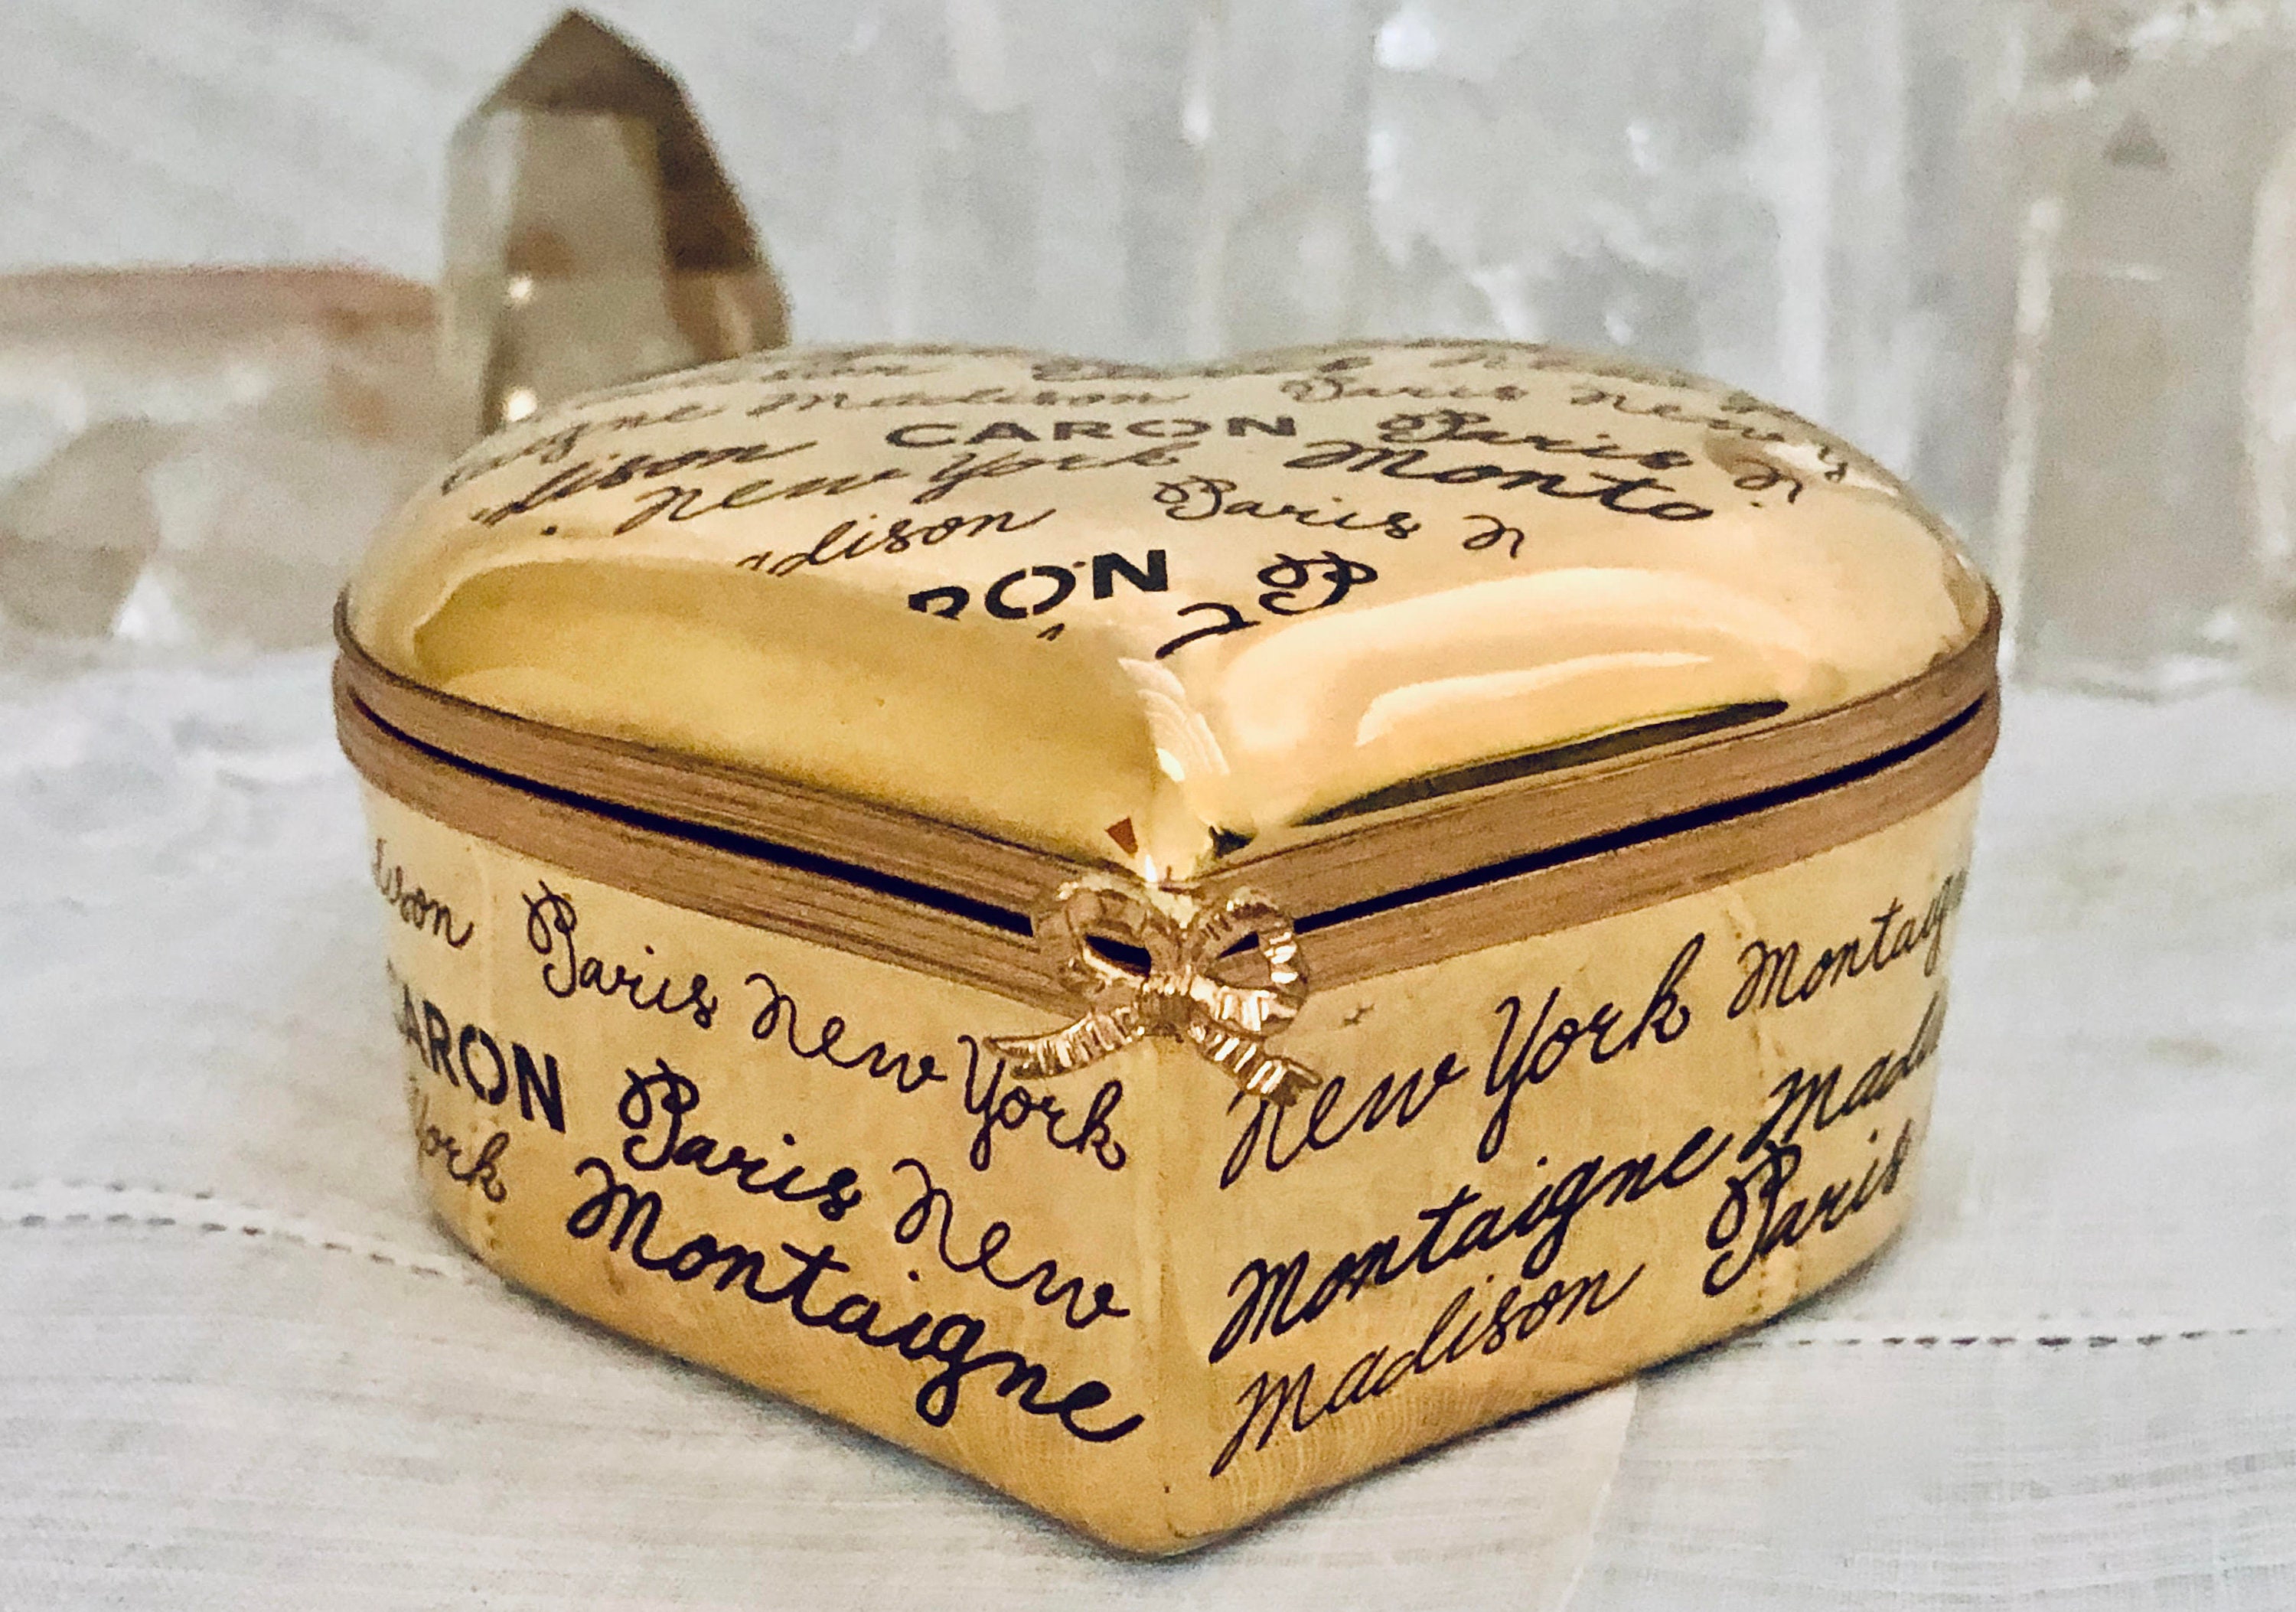 Madison Paris New
CARON Paris
New York Monta
adison Paris N
RON P
ison Paris New York
CARON Paris New
York Montaigne
New York Montaig
Montaigne Madi
Madison Paris